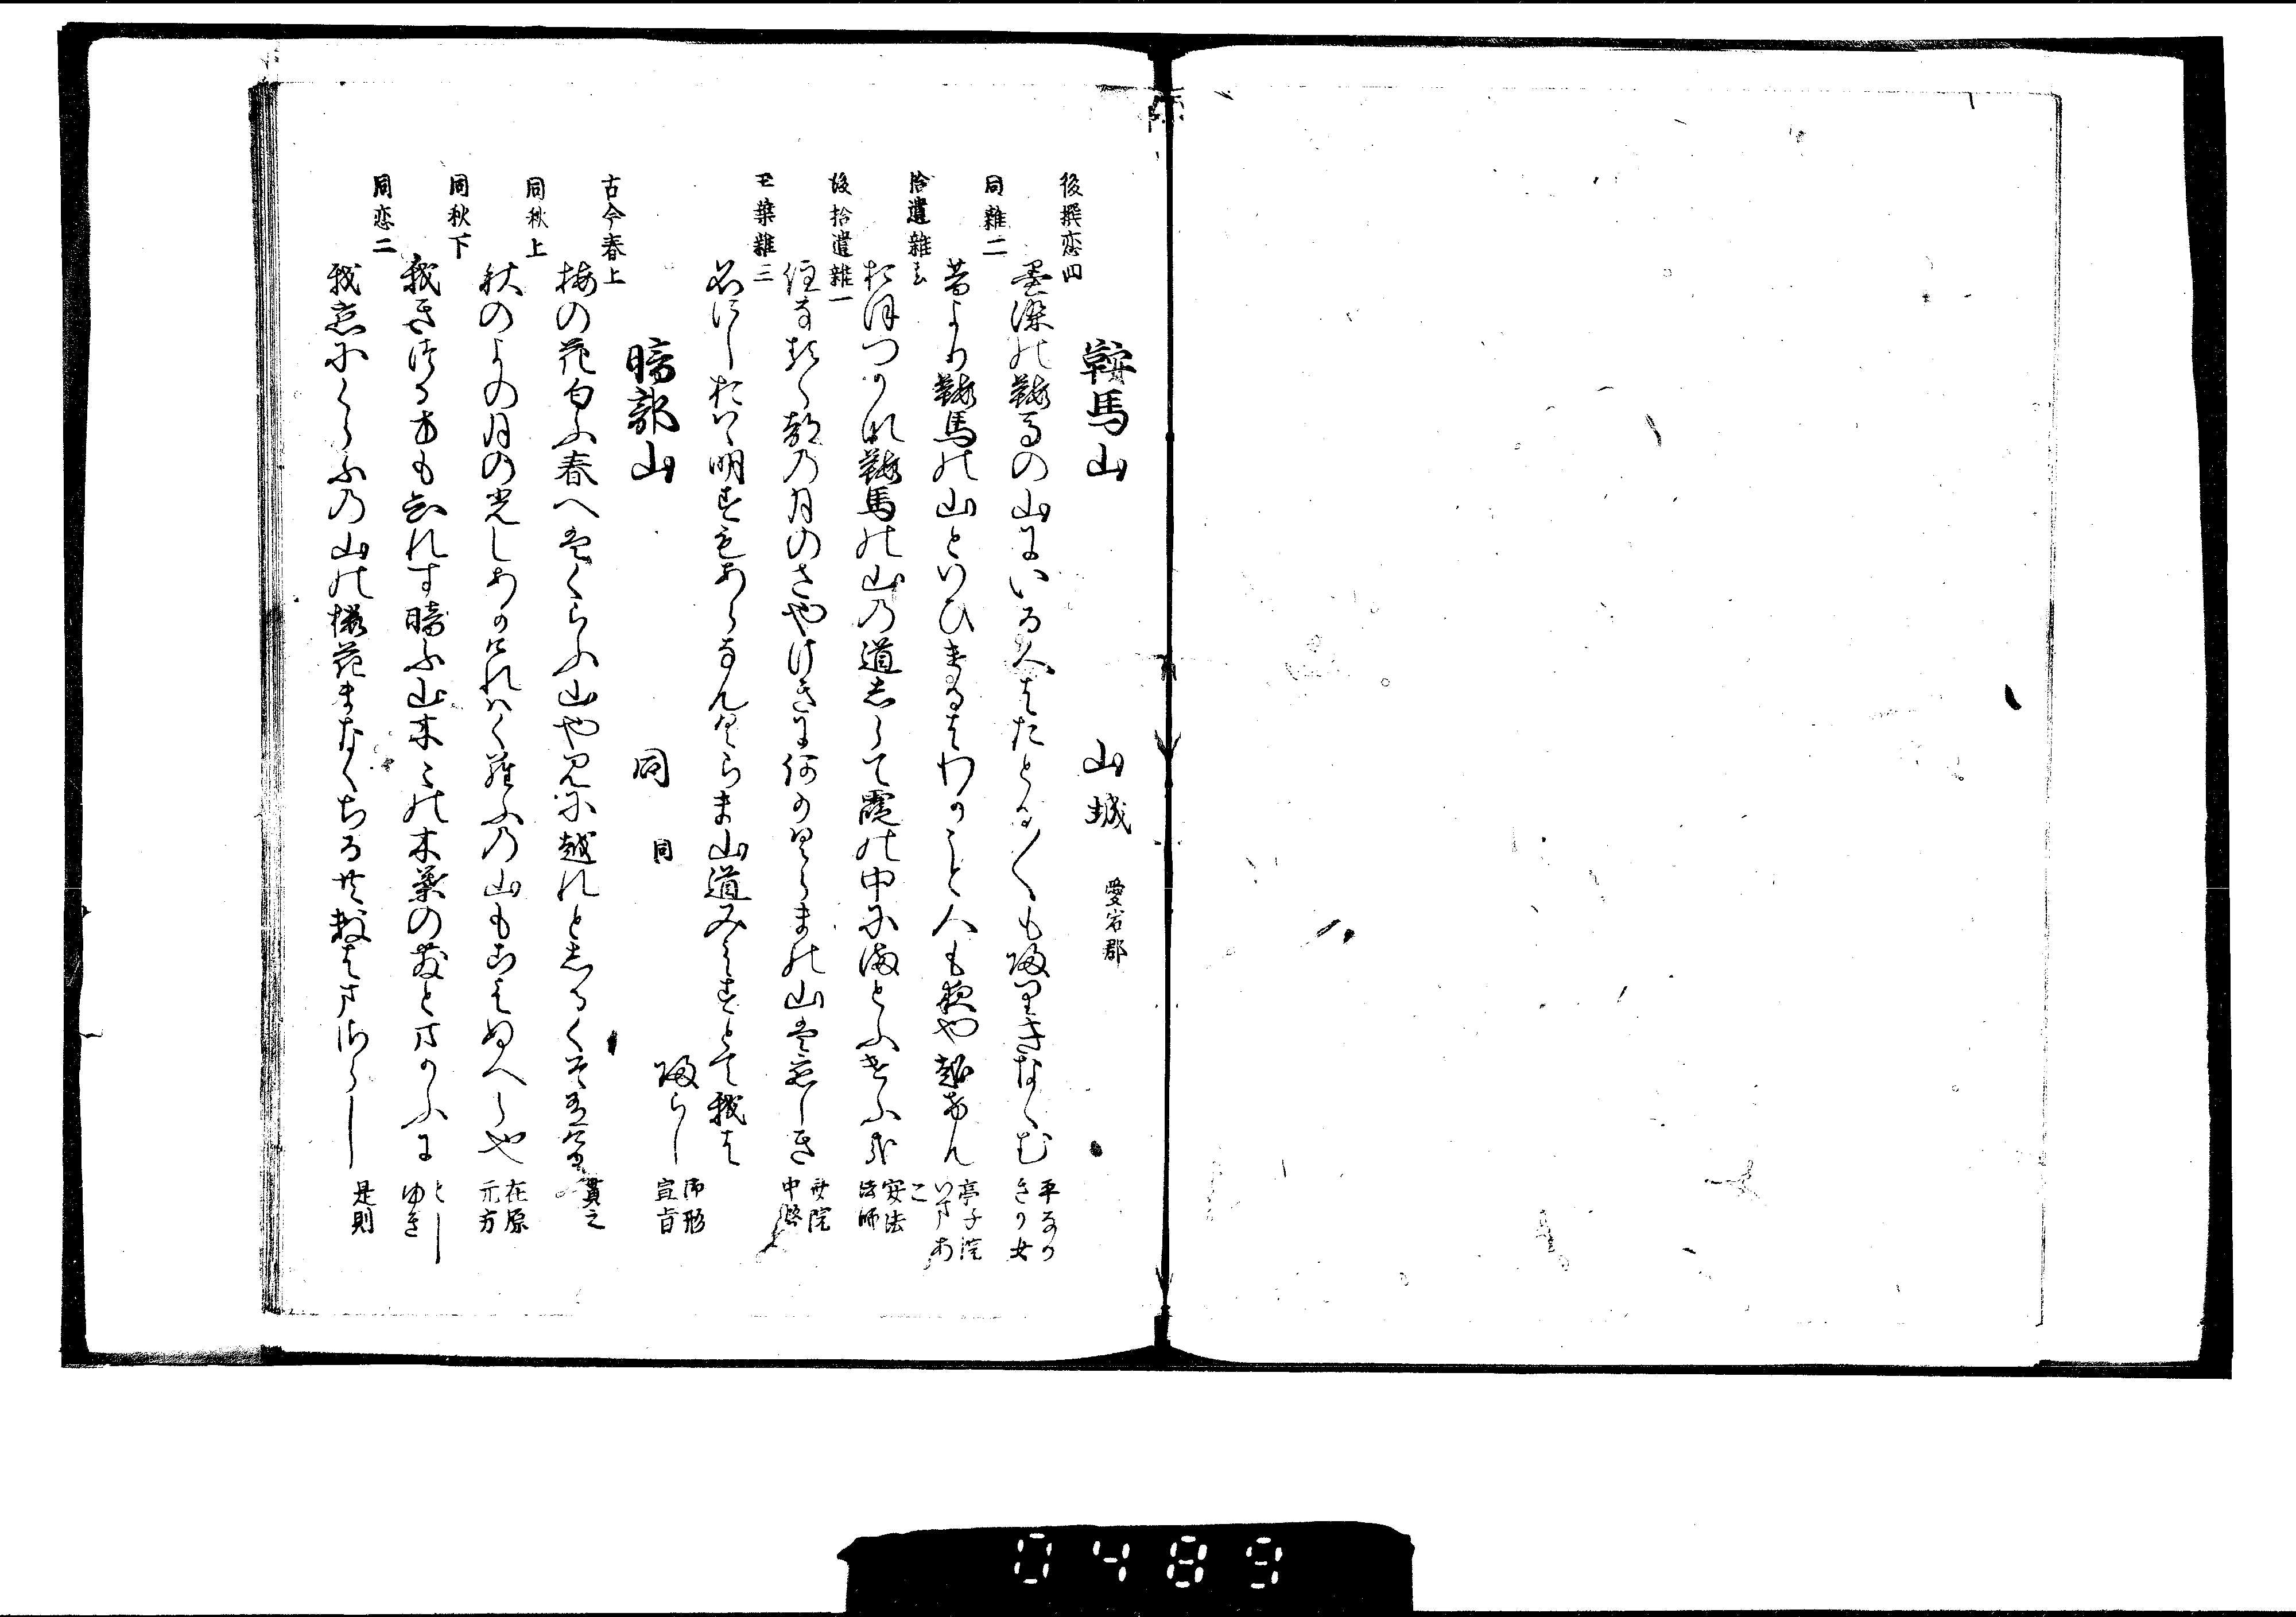 鞍馬山　山城　愛宕郡
後撰恋四
墨染の鞍馬の山にいる人はたとる〱も帰りきなゝむ　平なかきか女
同雑二
昔より鞍馬の山といひけるはわかこと人も夜や越けん　亭子院いまあこ
拾遺雑春
おほつかな鞍馬の山の道しらて霞の中にまとふけふ哉　安法法師
後拾遺雑一
住なるゝ都の月のさやけきに何かくらまの山は恋しき　斎院中務
玉葉雑三
名にしおはゝ明すもあらなんくらま山道みえすとて我は帰らし　御形宣旨
暗部山　同　同
古今春上
梅の花匂ふ春へはくらふ山やみに越れとしるくそ有ける　貫之
同秋上
秋のよの月の光しあかけれはくらふの山もこえぬへら也　在原元方
同秋下
我きつる方も知れす暗ふ山木ゝの木葉の散とまかふに　としゆき
同恋二
我恋にくらふの山の桜花まなくちるとも数はまさらし　是則
0489